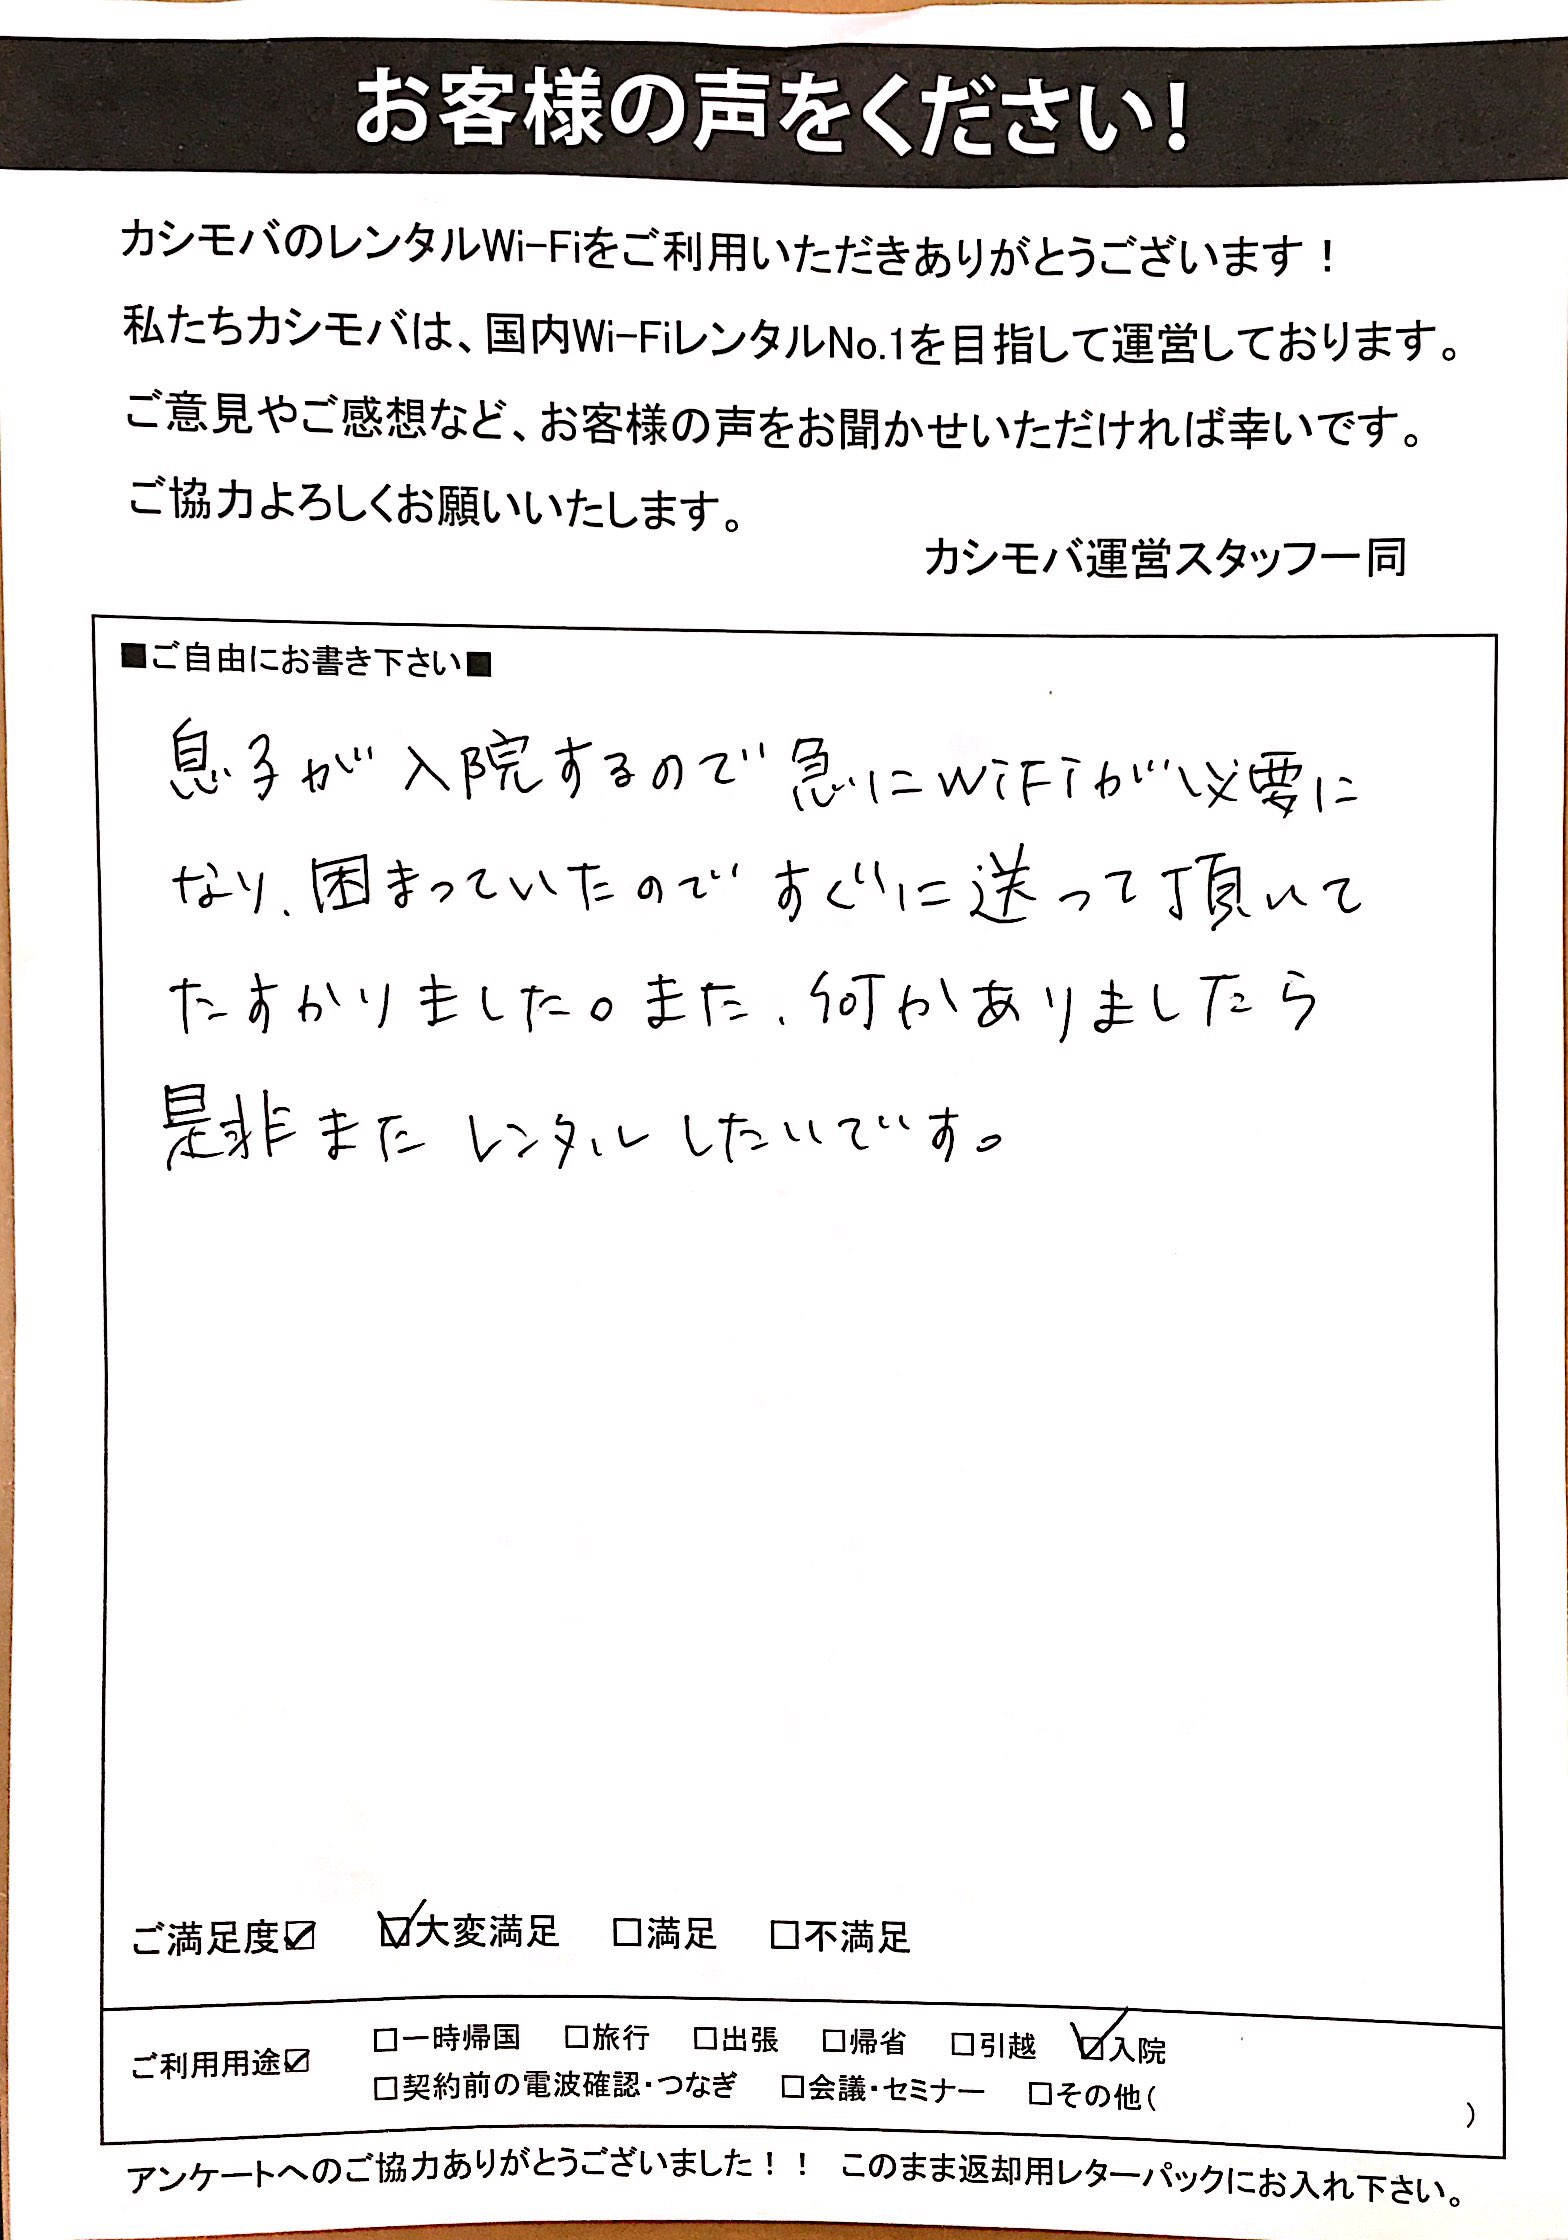 お客様の声をください!
カシモバのレンタルWi-Fiをご利用いただきありがとうございます！
私たちカシモバは、国内Wi-FiレンタルNo.1を目指して運営しております。
ご意見やご感想など、お客様の声をお聞かせいただければ幸いです。
ご協力よろしくお願いいたします。
カシモバ運営スタッフ一同
■ご自由にお書き下さい■
息子が入院するので急にWiFiが必要に
なり、困まっていたのですぐに送って頂いて
たすかりました。また、何かありましたら
是非またレンタルしたいです。
ご満足度☑ ☑大変満足 □満足 □不満足
ご利用用途☑ □一時帰国 □旅行 □出張 □帰省 □引越 ☑入院
□契約前の電波確認・つなぎ □会議・セミナー □その他( )
アンケートへのご協力ありがとうございました！！ このまま返却用レターパックにお入れ下さい。